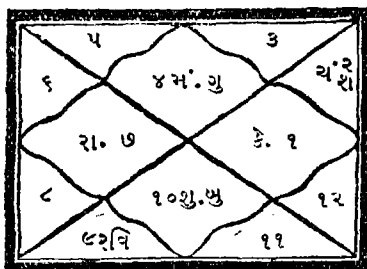 ૫ ૩
૬ ૪મં. ગુ ચં ૨ શ
રા. ૭ કે. ૧
૮ ૧૦શુ.બુ ૧૨
૯રવિ ૧૧